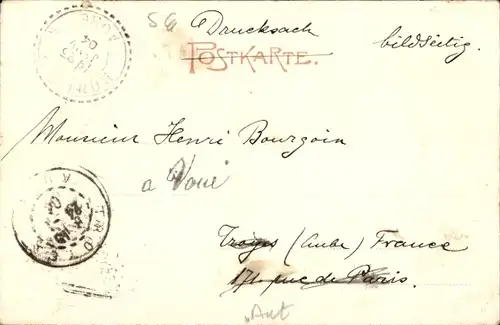 Drucksach
POSTKARTE.
bildseitig.
Monsieur Henri Bourgoin
a Voué
Troyes (Aube) France
171 rue de Paris.
Aut
AUBE
TROYES